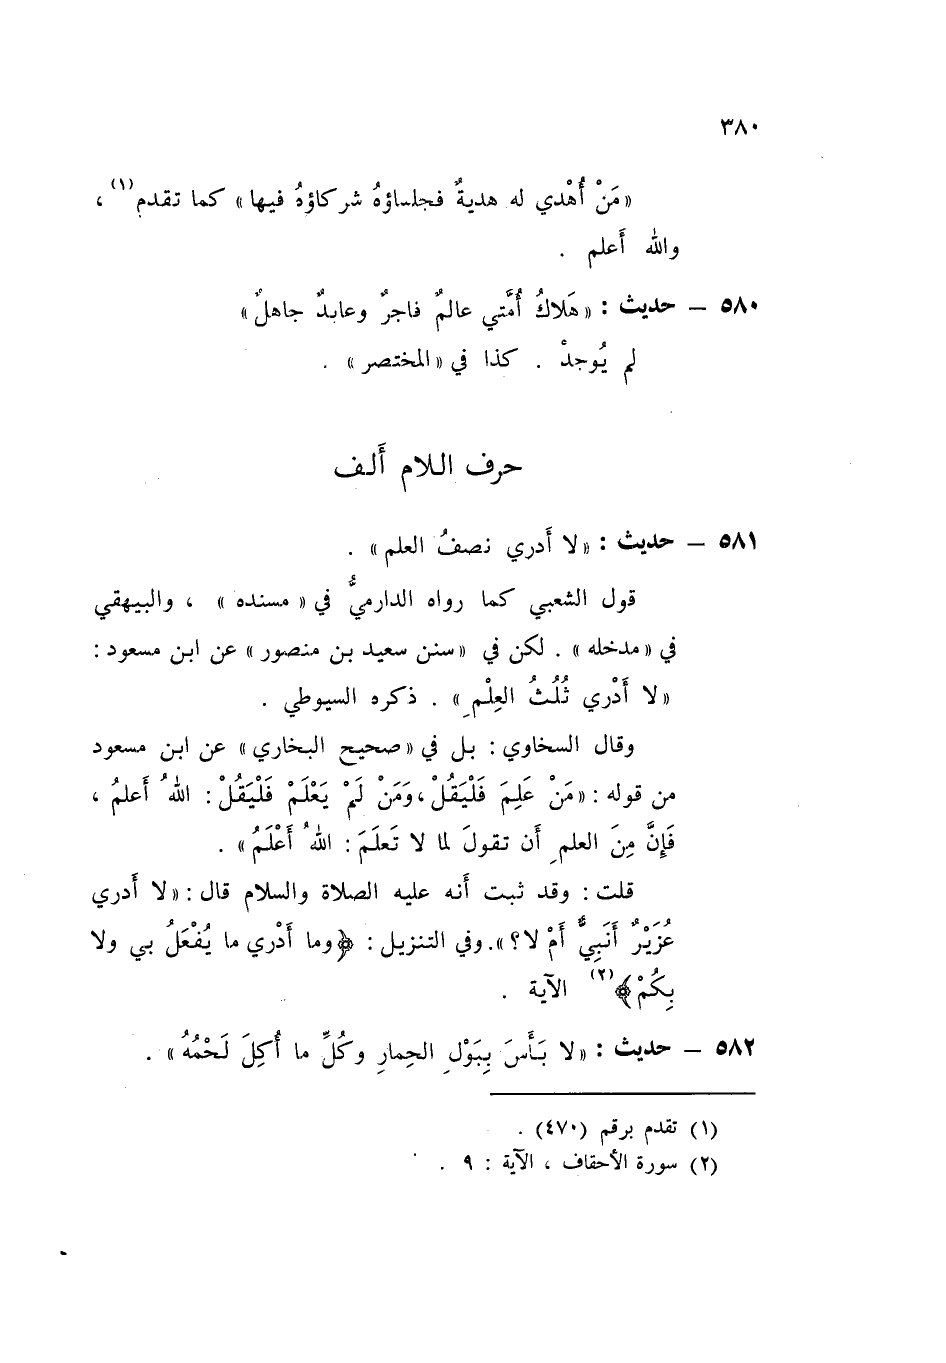 ٣٨٠
«مَنْ أُهْدي له هديةٌ فجلساؤهُ شركاؤهُ فيها» كما تقدم(١) ،
والله أَعلم .
٥٨٠ – حديث : «هَلاكُ أُمَّتي عالمٌ فاجرٌ وعابدٌ جاهلٌ»
لم يُوجدْ . كذا في «المختصر» .
حرف اللام أَلف
٥٨١ – حديث : «لا أَدري نصفُ العلم» .
قول الشعبي كما رواه الدارميُّ في «مسنده» ، والبيهقي
في «مدخله» . لكن في «سنن سعيد بن منصور» عن ابن مسعود :
«لا أَدْري ثُلُثُ العِلْمِ» . ذكره السيوطي .
وقال السخاوي : بل في «صحيح البخاري» عن ابن مسعود
من قوله : «مَنْ عَلِمَ فَلْيَقُلْ، وَمَنْ لَمْ يَعْلَمْ فَلْيَقُلْ : اللهُ أَعلمُ ،
فَإِنَّ مِنَ العلمِ أَن تقولَ لما لا تَعلَمَ : اللهُ أَعْلَمُ» .
قلت : وقد ثبت أَنه عليه الصلاة والسلام قال : «لا أَدري
عُزَيْرٌ أَنَبِيٌّ أَمْ لا؟». وفي التنزيل : ﴿وما أَدْري ما يُفْعَلُ بي ولا
بِكُمْ﴾(٢) الآية .
٥٨٢ – حديث : «لا بَأَسَ بِبَوْلِ الحِمارِ وكُلِّ ما أُكِلَ لَحْمُهُ» .
(١) تقدم برقم (٤٧٠) .
(٢) سورة الأحقاف ، الآية : ٩ .